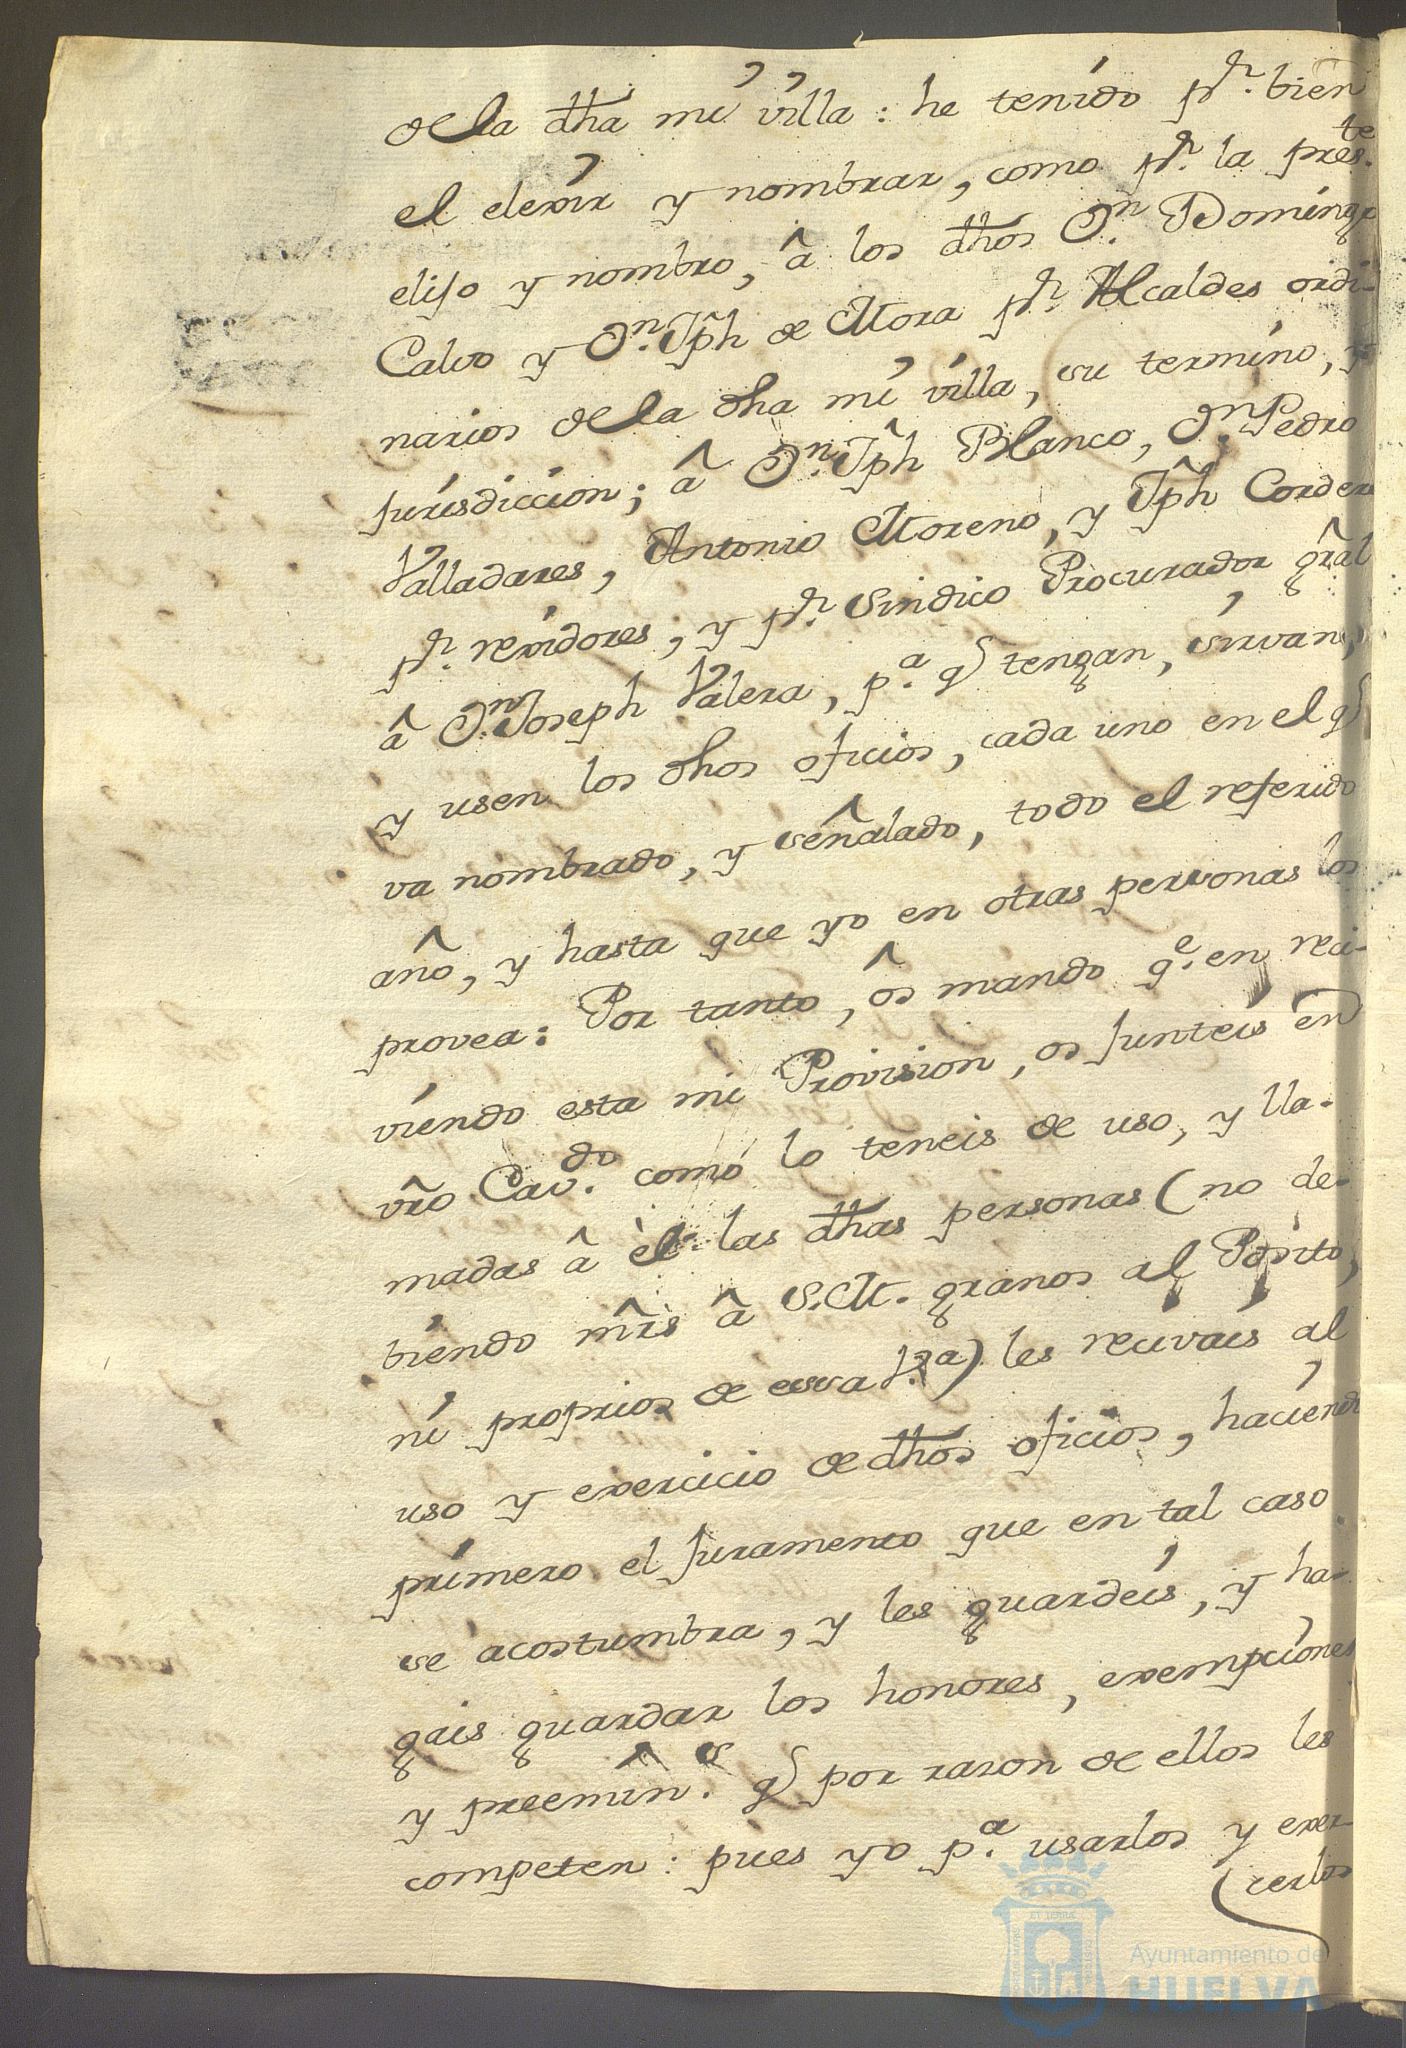 de la dha mi villa: he tenido pr. bien
el elexir y nombrar, como pr. la preste.
elijo y nombro, â los dhos Dn. Domingo
Calvo y Dn. Jph de Mora pr. Alcaldes ordi-
narios de la dha mi villa, su termino, y
jurisdiccion; â Dn. Jph Blanco, Dn. Pedro
Valladares, Antonio Moreno, y Jph Cordero
pr. rexidores; y pr. Sindico Procurador gral
â Dn. Joseph Valera, pa. q tengan, sirvan,
y usen los dhos oficios, cada uno en el q
va nombrado, y señalado, todo el referido
año, y hasta que yo en otras personas los
provea: Por tanto, ôs mando qe. en reci-
viendo esta mi Provision, os junteis en
vro Cavdo. como lo teneis de uso, y lla-
madas â èl las dhas personas (no de-
biendo mrs â S.M. granos al Posito,
ni proprios de essa) les recivais al
uso y exercicio de dhos oficios, haciendo
primero el juramento que en tal caso
se acostumbra, y les guardeis, y ha-
gais guardar los honores, exempciones
y preemins. q por razon de ellos les
competen: pues yo pa. usarlos y exer-
(cerlos
Ayuntamiento de
HUELVA